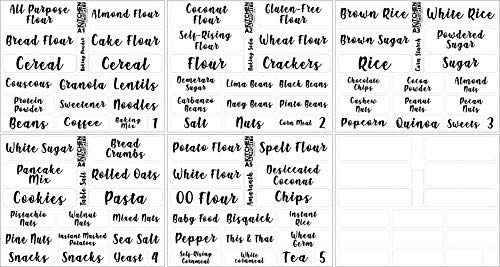 All Purpose Flour
Almond Flour
Bread Flour
Cake Flour
Baking Powder
Cereal
Cereal
Couscous
Granola
Lentils
Protein Powder
Sweetener
Noodles
Beans
Coffee
Baking Mix
1
Coconut Flour
Gluten-Free Flour
Self-Rising Flour
Wheat Flour
Baking Soda
Flour
Crackers
Demerara Sugar
Lima Beans
Black Beans
Garbanzo Beans
Navy Beans
Pinto Beans
Salt
Nuts
Corn Meal
2
Brown Rice
White Rice
Brown Sugar
Powdered Sugar
Corn Starch
Rice
Sugar
Chocolate Chips
Cocoa Powder
Almond Nuts
Cashew Nuts
Peanut Nuts
Pecan Nuts
Popcorn
Quinoa
Sweets
3
White Sugar
Bread Crumbs
Pancake Mix
Rolled Oats
Table Salt
Cookies
Pasta
Pistachio Nuts
Walnut Nuts
Mixed Nuts
Pine Nuts
Instant Mashed Potatoes
Sea Salt
Snacks
Snacks
Yeast
4
Potato Flour
Spelt Flour
White Flour
Desiccated Coconut
Amaranth
OO Flour
Chips
Baby Food
Bisquick
Instant Rice
Pepper
This & That
Wheat Germ
Self-Rising Cornmeal
White cornmeal
Tea
5